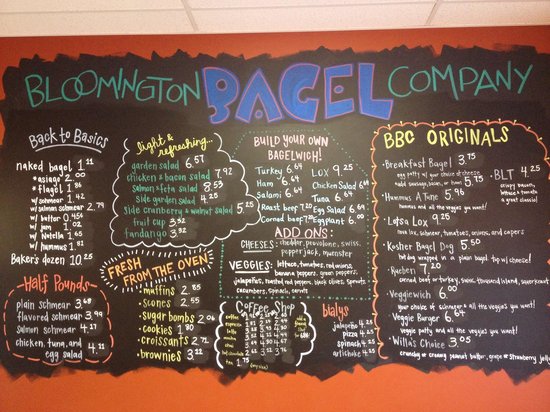 BLOOMINGTON BAGEL COMPANY
Back to Basics
naked bagel 1.11
*asiago 2.00
*flagel 1.86
w/schmear
w/salmon schmear 2.79
w/butter
w/jam 1.02
w/Nutella 1.65
w/hummus 1.81
Baker's dozen 10.25
Half Pounds
plain schmear 3.68
flavored schmear 3.99
salmon schmear 4.11
chicken, tuna, and
egg salad 4.21
Light &
refreshing
garden salad 6.57
chicken & bacon salad 7.92
salmon & feta salad 8.53
side garden salad 4.25
side cranberry & walnut salad 5.25
fruit cup 3.32
fandango 3.32
FRESH
FROM THE OVEN
*muffins 2.55
*scones 2.55
*sugar bombs 2.06
*cookies 1.80
*croissants 2.71
*brownies 3.22
BUILD YOUR OWN
BAGELWICH!
Turkey 6.64
Ham 6.64
Salami 6.64
Roast beef 7.20
Corned beef
LOX 9.25
Chicken Salad
Tuna 6.64
Egg Salad 6.64
Eggplant 6.00
ADD ONS:
CHEESES: cheddar, provolone, swiss,
pepperjack, muenster
VEGGIES: lettuce, tomatoes, red onions,
banana peppers, green peppers,
jalapeños, roasted red peppers, black olives, sprouts
cucumbers, spinach, carrots
Coffee Shop
coffee
espresso
latte
mocha
chai
hot chocolate
tea 1.75
bialys
jalapeño 4.25
pizza 4.25
spinach 4.25
artichoke 4.25
BBC ORIGINALS
•Breakfast Bagel 3.75
egg patty w/ your choice of cheese
add sausage, bacon, or ham 5.75
•BLT 4.25
bacon, lettuce,
tomato & a
great classic!
•Hummus A Tome 5.96
hummus and all the veggies you want!
•Lotsa Lox 9.25
nova lox, schmear, tomatoes, onions, and capers
•Kosher Bagel Dog 5.50
hot dog wrapped in a plain bagel, top w/ cheese!
•Rueben 7.20
corned beef or turkey, swiss, thousand island, sauerkraut
•Veggiewich 6.00
your choice of schmear & all the veggies you want!
•Veggie Burger 6.64
veggie patty and all the veggies you want!
•Willa's Choice 3.05
crunchy or creamy peanut butter, grape or strawberry jelly